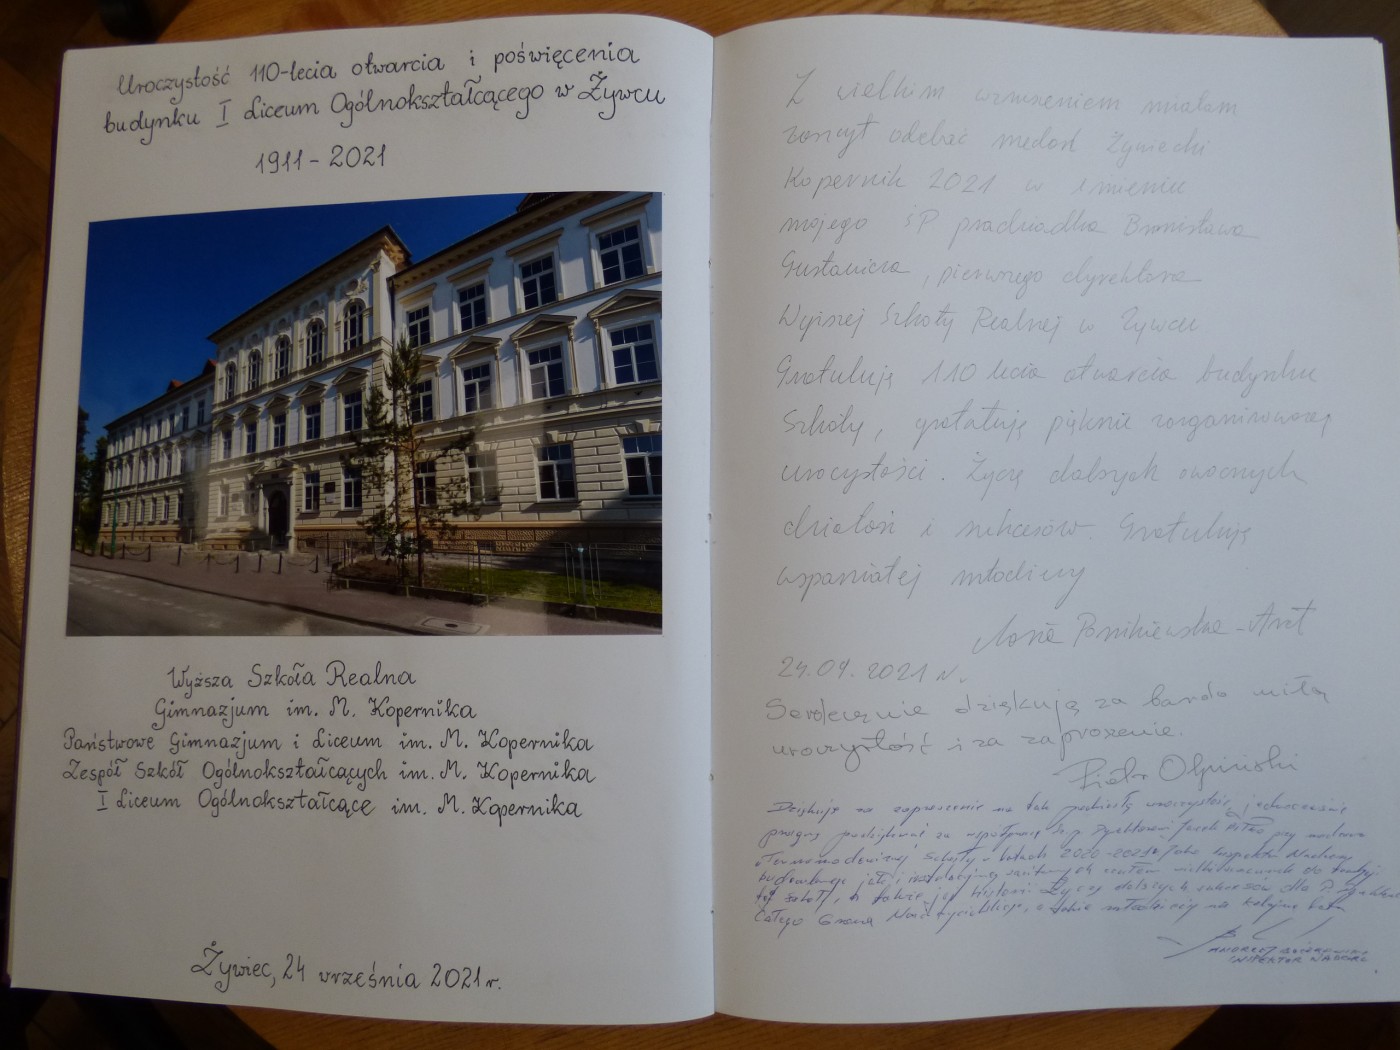 Uroczystość 110-lecia otwarcia i poświęcenia
budynku I Liceum Ogólnokształcącego w Żywcu
1911 - 2021
Wyższa Szkoła Realna
Gimnazjum im. M. Kopernika
Państwowe Gimnazjum i Liceum im. M. Kopernika
Zespół Szkół Ogólnokształcących im. M. Kopernika
I Liceum Ogólnokształcące im. M. Kopernika
Żywiec, 24 września 2021 r.
Z wielkim wzruszeniem miałam
zaszczyt odebrać medal Żywiecki
Kopernik 2021 w imieniu
mojego ŚP. pradziadka Bronisława
Gustawicza, pierwszego dyrektora
Wyższej Szkoły Realnej w Żywcu
Gratuluję 110 lecia otwarcia budynku
Szkoły, gratuluję pięknie zorganizowanej
uroczystości. Życzę dalszych owocnych
działań i sukcesów. Gratuluję
wspaniałej młodzieży
24.09.2021 r.
Serdecznie dziękuję za bardzo miłą
uroczystość i za zaproszenie.
Piotr
Dziękuję za zaproszenie na tak uroczystość, jednocześnie
pragnę podziękować za współpracę
Szkoły w latach 2020-2021. Jako Inspektor Nadzoru
tej szkoły, Życzę dalszych sukcesów dla
Całego Grona Nauczycielskiego, a także młodzieży na kolejne lata
INSPEKTOR NADZORU